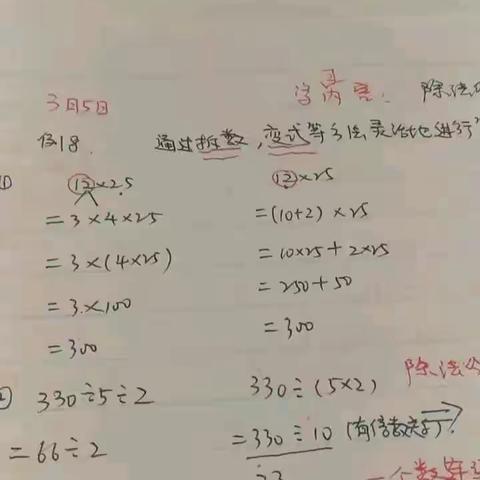 3月5日
学习内容: 除法
例8. 通过拆数,变式等方法灵活地进行
① 12×25
= 3×4×25
= 3×(4×25)
= 3×100
= 300
12×25
= (10+2)×25
= 10×25+2×25
= 250+50
= 300
330÷5÷2
= 66÷2
330÷(5×2)
= 330÷10 (有倍数关系)
除法
一个数